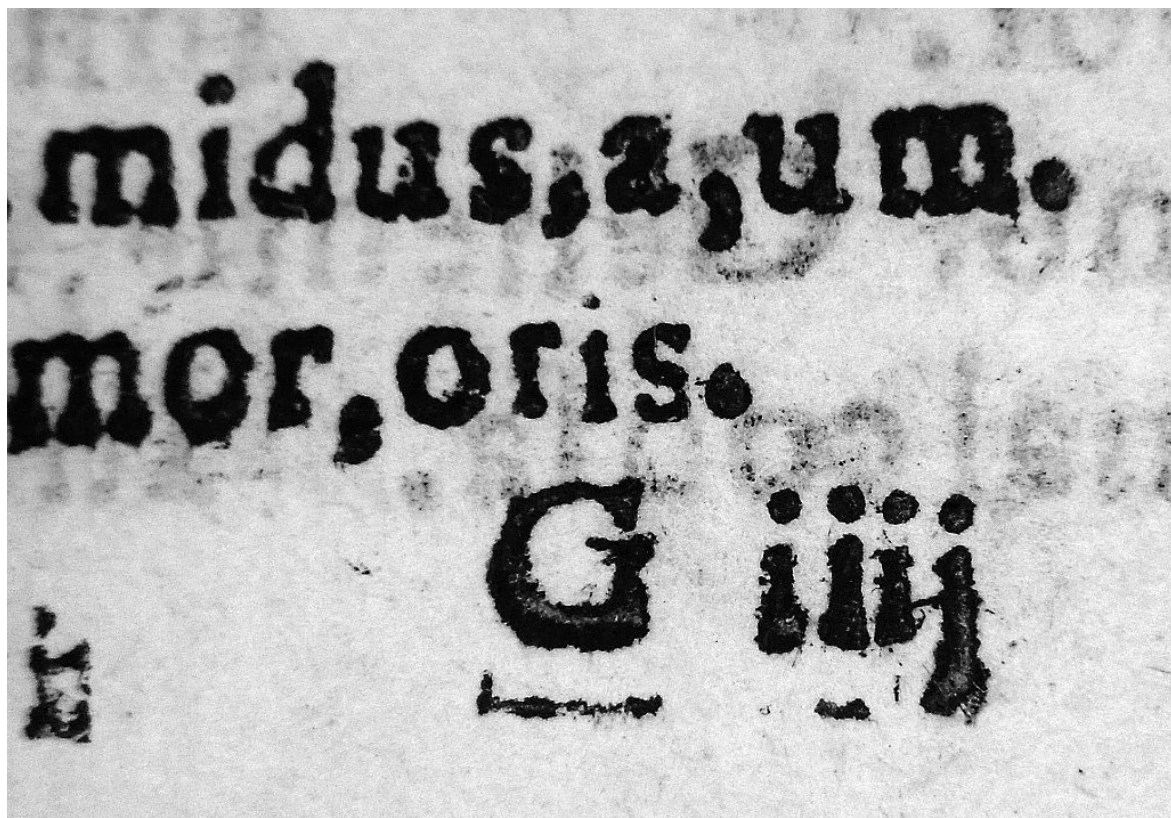 midus,a,um.
mor,oris.
G iiij